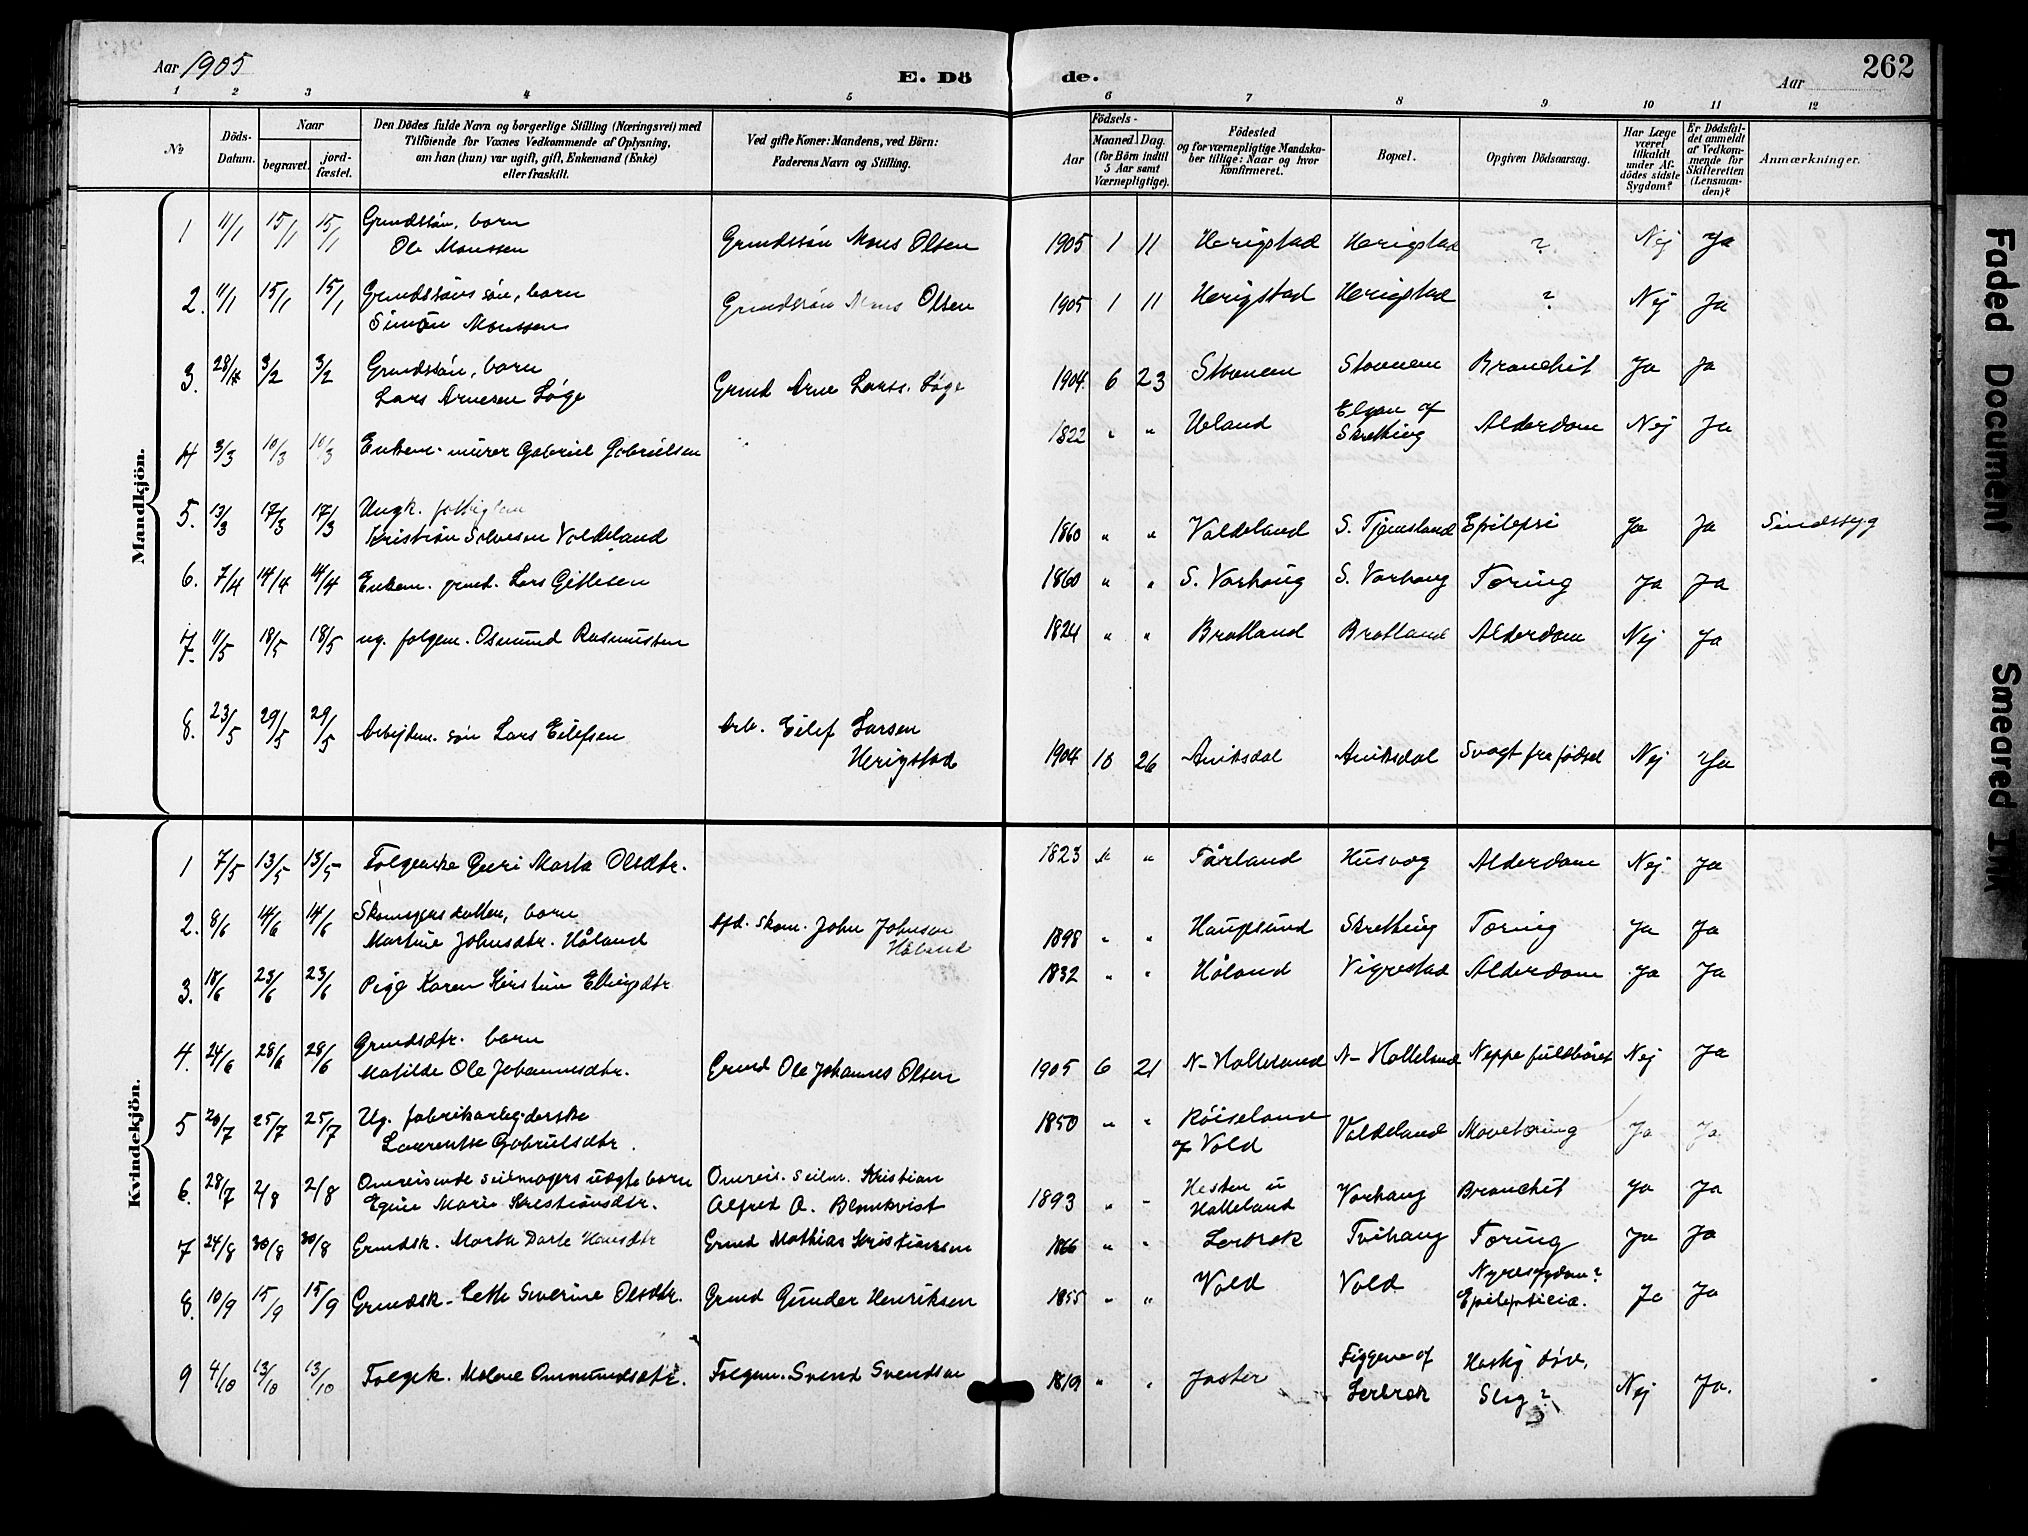 Aar 1905
E. Dö de.
Aar
262
1 2 3 4 5 6 7 8 9 10 11 12
No
Döds-Datum.
Naar
begravet.
jord-fæstet.
Den Dödes fulde Navn og borgerlige Stilling (Næringsvei) med
Tilföiende for Voxnes Vedkommende af Oplysning,
om han (hun) var ugift, gift, Enkemand (Enke)
eller fraskilt.
Ved gifte Koner: Mandens, ved Börn:
Faderens Navn og Stilling.
Födsels-
Aar
Maaned. Dag.
(for Börn indtil
5 Aar samt
Værnepligtige).
Födested
og for værnepligtige Mandska-
ber tillige: Naar og hvor
konfirmeret.
Bopæl.
Opgiven Dödsaarsag.
Har Læge
været
tilkaldt
under Af-
dödes sidste
Sygdom?
Er Dödsfal-
det anmeldt
af Vedkom-
mende for
Skifteretten
(Lensman-
den)?
Anmærkninger.
Mandkjön.
1 11/1 15/1 15/1 Grundssön, barn
Ole Monssen Grundssön Mons Olsen 1905 1 11 Herigstad Herigstad ? Nej Ja
2. 11/1 15/1 15/1 Grundssöns sön, barn
Simon Monssen Grundssön Mons Olsen 1905 1 11 Herigstad Herigstad ? Nej Ja
3. 3/2 3/2 Grundssön, barn
Lars Arnesen Løge Grund Arne Larss. Løge 1904 6 23 Stavnem Stavnem Bronchit Ja Ja
4 3/3 10/3 10/3 Enkem. murer Gabriel Gabrielsen 1822 " " Ueland
Elgan af
Skretting Alderdom Nej Ja
5. 13/3 17/3 17/3 Ungk.
Kristian Salvesen Voldeland 1860 " " Valdeland S. Tjemsland Epilepsi Ja Ja Sindssyg
6. 7/4 14/4 14/4 Enkem. grund. Lars Gitlesen 1860 " " S. Varhaug S. Varhaug Tæring Ja Ja
7. 11/5 18/5 18/5 ug. folgem. Osmund Rasmussen 1824 " " Bratland Bratland Alderdom Nej Ja
8. 23/5 29/5 29/5 Arbejdem. sön Lars Eilefsen Arb. Eilef Larsen
Herigstad 1904 10 26 Aniksdal Aniksdal Svagt fra fødsel Nej Ja
Kvindekjön.
1 7/5 13/5 13/5 Folgenke Guri Marta Olsdtr. 1823 " " Tårland Husvæg Alderdom Nej Ja
2. 8/6 14/6 14/6 Skomagersdatter, barn
Martine Johnsdtr. Håland Afd. Skom. John Johnsen
Håland 1898 " " Haugesund Skretting Tæring Ja Ja
3. 18/6 23/6 23/6 Pige Karen Kirstine Ellingsdtr 1832 " " Håland Vigrestad Alderdom Ja Ja
4. 24/6 28/6 28/6 Grundsdtr. barn
Matilde Ole Johannesdtr. Grund Ole Johannes Olsen 1905 6 21 N-Hølleland N-Hølleland Neppe fuldbåret Nej Ja
5 20/7 25/7 25/7 Ug. fabrikarbejderske
Laurentse Gabrielsdtr. 1850 " " Røiseland
af Vold Valdeland Mavetæring Ja Ja
6. 28/7 2/8 2/8 Omreisende seilmagers uægte barn
Egine Marie Kristiansdtr. Omreis. seilm. Kristian
Alfred A. Blomkvist 1893 " " Hesten u
Hølleland Varhaug Bronchit Ja Ja
7 24/8 30/8 30/8 Grundsk. Marta Dorte Hansdtr Grund Mathias Kristiansen 1866 " " Lerbrek Tvihaug Tæring Ja Ja
8. 10/9 15/9 15/9 Grundsk. Lette Severine Olsdtr. Grund Gunder Henriksen 1855 " " Vold Vold Nyresygdom?
Epilepticia. Ja Ja
9 4/10 13/10 13/10 Folgek. Malene Ommundsdtr. Folgem. Svend Svendsen 1819 " " Jaster Figgene af
Lerbrek
Slag? Nej Ja.
Faded Document
Smeared Ink